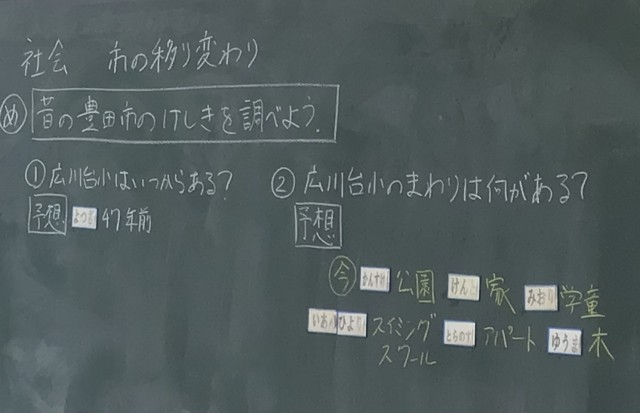 社会 市の移り変わり
め 昔の豊田市のけしきを調べよう。
① 広川台小はいつからある?
予想 47年前
② 広川台小のまわりは何がある?
予想
今 かんすけ 公園 けん 家 みお 学童
いお ひより スイミングスクール とものす アパート ゆうま 木